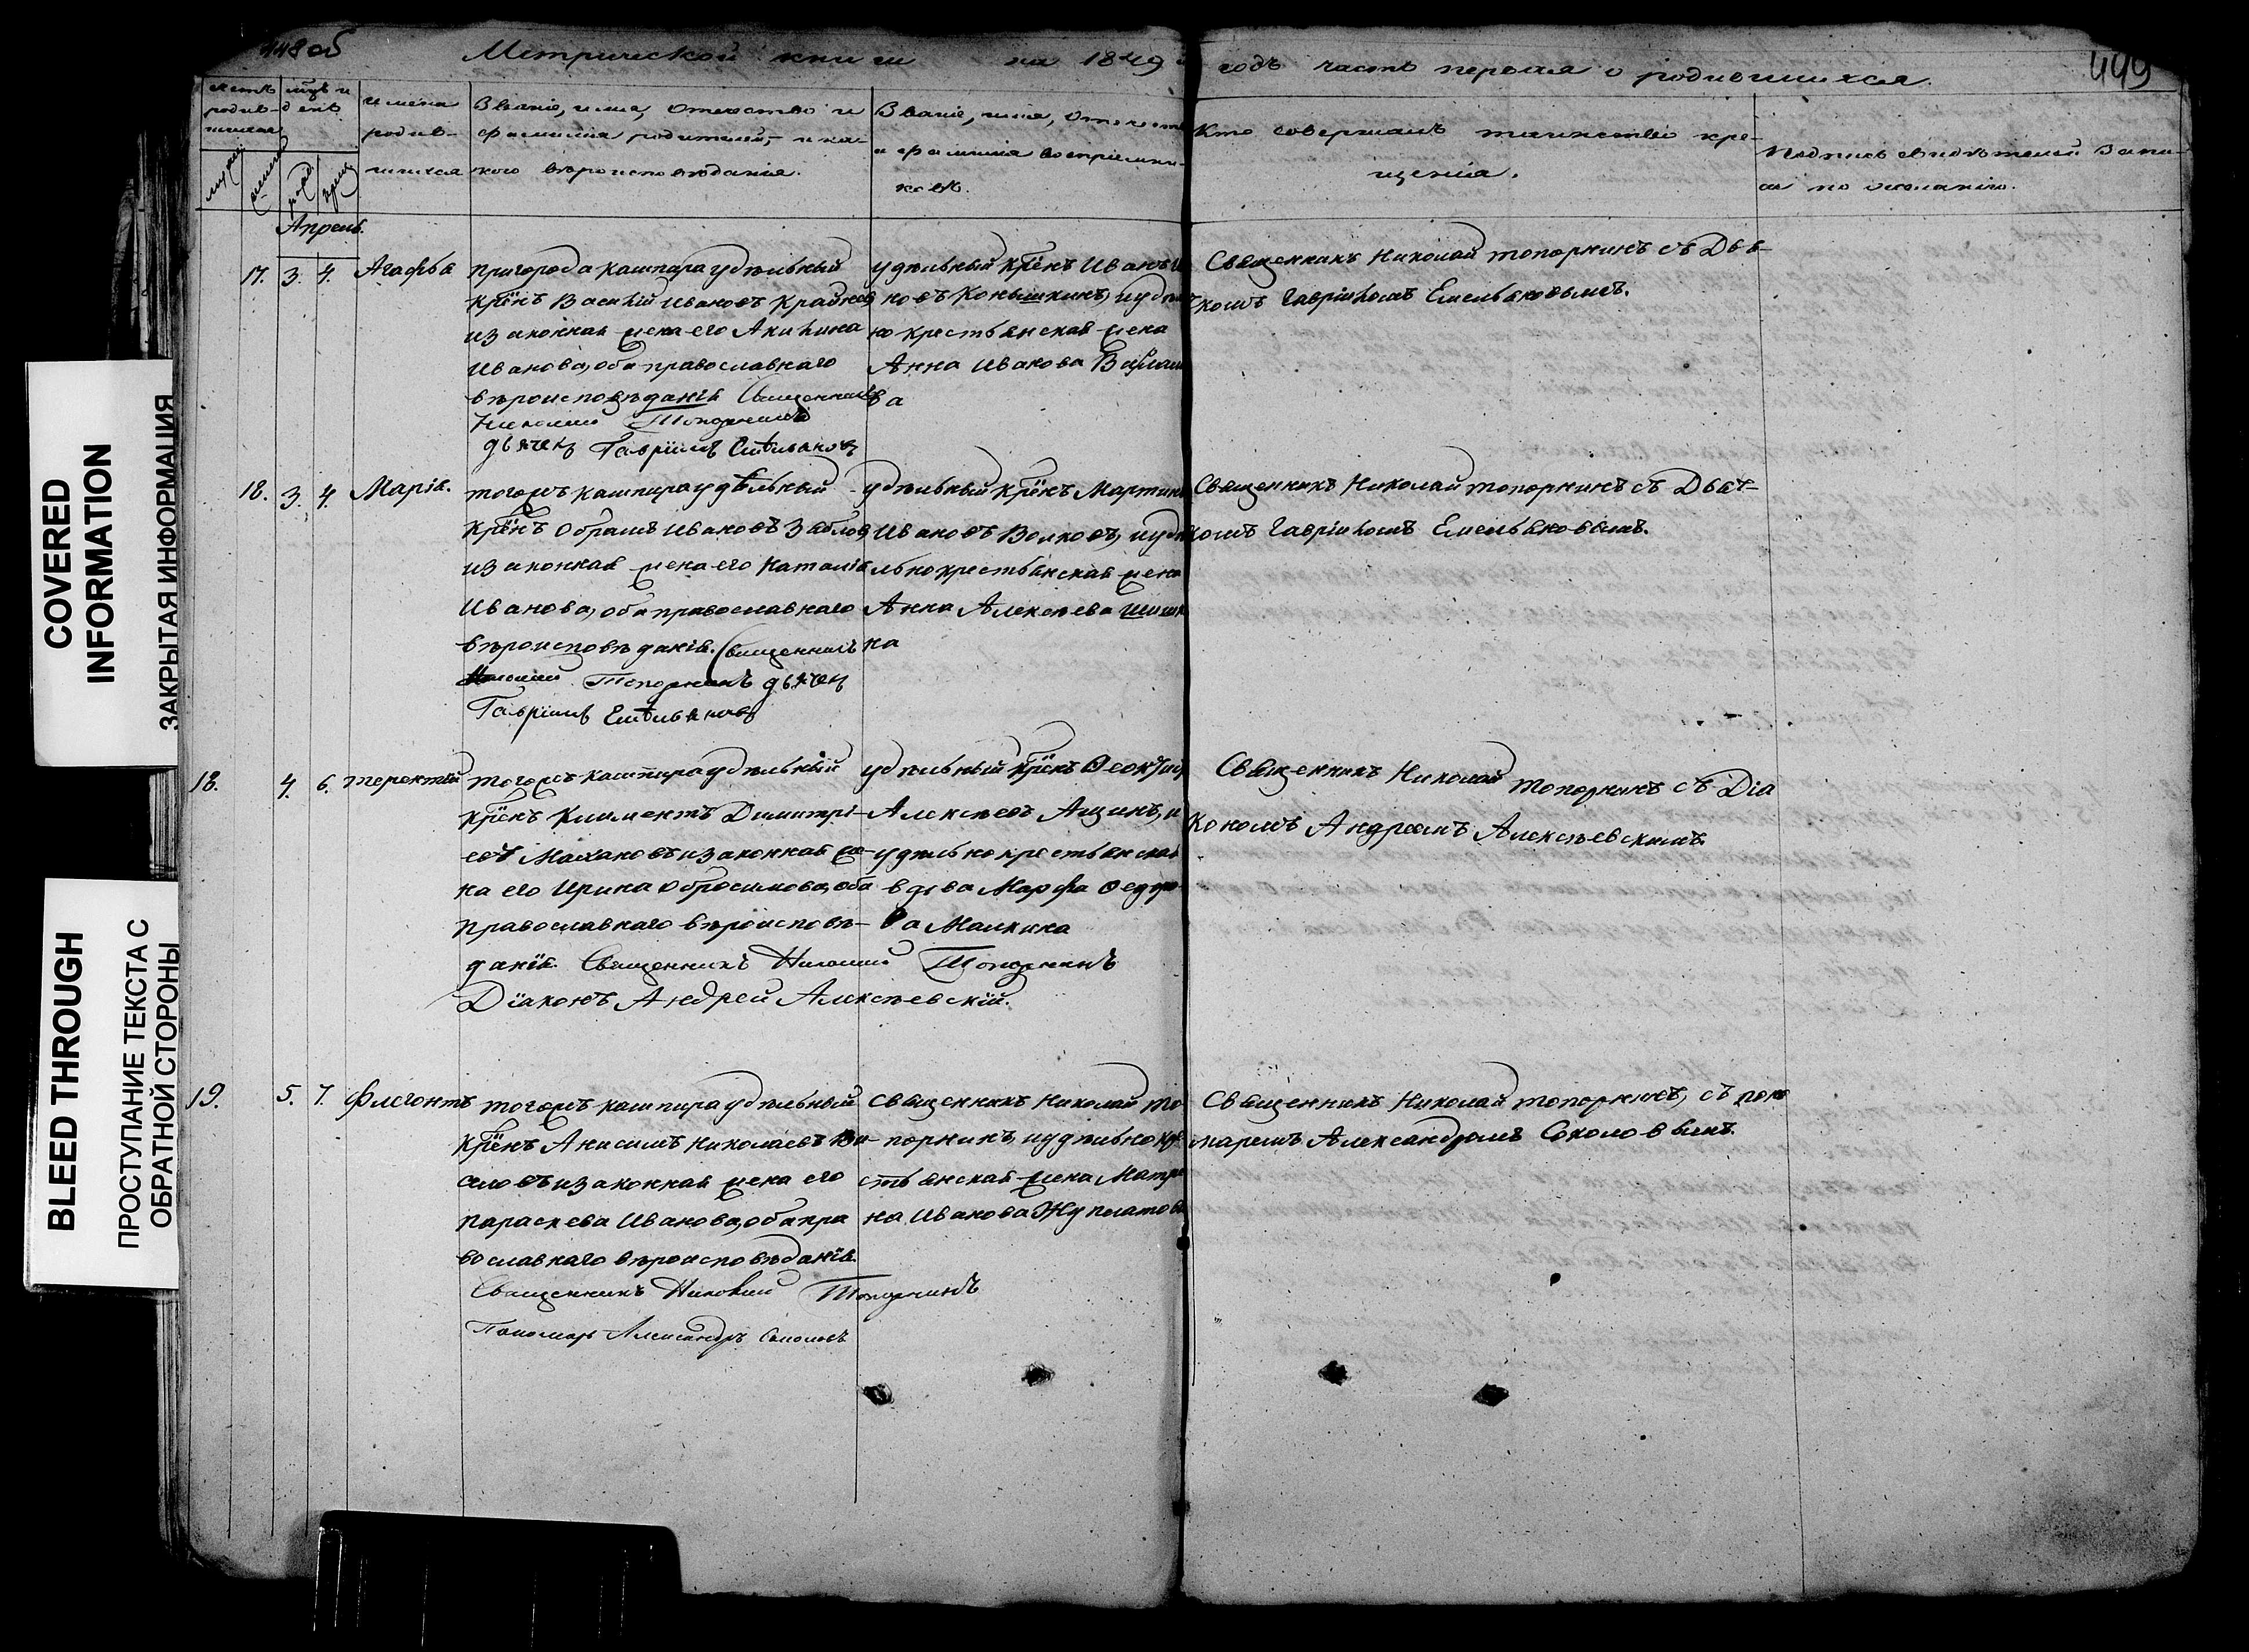 448 об
Метрической книги на 1849 годъ часть первая о родившихся.
449
счетъ родив-шихся
мѣсяцъ и день
мужеск
женск
рожд
крещ
имена родив-шихся
Званіе, имя, отчество и фамилія родителей, и ка-кого вѣроисповѣданія.
Званіе, имя, отечество и фамилія воспріемни-ковъ.
Кто совершалъ таинство кре-щенія.
Подпись свидѣтелей запи-си по желанію.
Апрель.
17. 3. 4. Агафья
пригорода кашпира удѣльный
крѣнъ Василій Ивановъ Крайнов
и законная жена его Акилина
Иванова, оба православнаго
вѣроисповѣданія Священникъ
Николай Топорнинъ
дьячекъ Гавріилъ Емельяновъ
удѣльный крѣнъ Иванъ И
новъ Коньшкинъ, и удѣль
но крестьянская жена
Анна Иванова
ва
Священникъ Николай топорнинъ съ Дья-
комъ Гавріиломъ Емельяновымъ.
18. 3. 4. Марія.
тогожъ кашпира удѣльный
крѣнъ Обрамъ Ивановъ Заблов
и законная жена его Наталія
Иванова, оба православнаго
вѣроисповѣданія. Священникъ
Николай Топорнинъ дьячекъ
Гавріилъ Емельяновъ
удѣльный крѣнъ Мартинъ
Ивановъ Волковъ, и удѣ
льнокрестьянская жена
Анна Алексѣева Шишк
на
Священникъ Николай топорнинъ съ Дьяч-
комъ Гавріиломъ Емельяновымъ.
18. 4. 6. терентій
тогожъ кашпира удѣльный
крѣнъ Климентъ Димитрі-
евъ Махановъ и законная же-
на его Ирина Обросимова, оба
православнаго вѣроисповѣ-
данія. Священникъ Николай Топорнинъ
Діаконъ Андрей Алексѣевскій.
удѣльный крѣнъ Ѳеоктист
Алексѣевъ Ащинъ, и
удѣльно крестьянская
вдова Марфа Ѳедоро
ва Малкина
Священникъ Николай топорнинъ съ Діа
кономъ Андреемъ Алексѣевскимъ.
19. 5. 7. Флегонтъ
тогожъ кашпира удѣльный
крѣнъ Анисимъ Николаевъ Ки-
селовъ и законная жена его
параскева Иванова, оба пра
вославнаго вѣроисповѣданія.
Священникъ Николай Топорнинъ
Пономарь Александръ Соколовъ
Священникъ Николай то
порнинъ, и удѣльно кре
стьянская жена Матре
на Иванова Жуплатова
Священникъ Николай топорнинъ, съ поно
маремъ Александромъ Соколовымъ.
COVERED
INFORMATION
ЗАКРЫТАЯ ИНФОРМАЦИЯ
BLEED THROUGH
ПРОСТУПАНИЕ ТЕКСТА С
ОБРАТНОЙ СТОРОНЫ